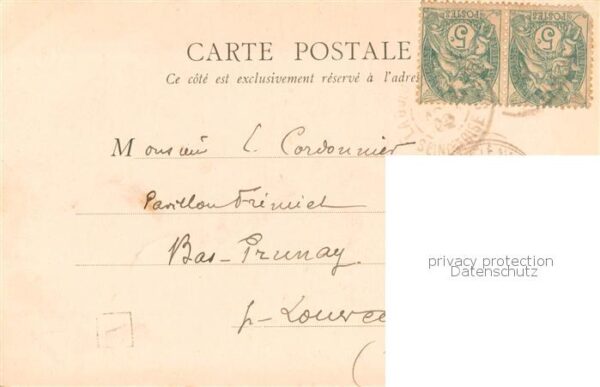 CARTE POSTALE
Ce côté est exclusivement réservé à l'adres
POSTES 5c
POSTES 5c
Monsieur L. Cordonnier
Pavillon Trémiet
Bas-Prunay
p- Louvec
privacy protection
Datenschutz